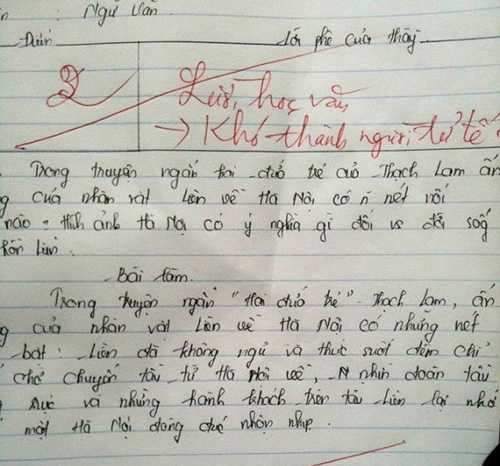 : Ngữ Văn
Điểm Lời phê của thầy
2 Lười học văn,
→ Khó thành người tử tế
Trong truyện ngắn hai đứa trẻ của Thạch Lam ấn
g của nhân vật Liên về Hà Nội có n nét nổi
nào. Hình ảnh Hà Nội có ý nghĩa gì đối vs đời sống
hồn Liên.
Bài làm
Trong truyện ngắn "Hai đứa trẻ" Thạch Lam, ấn
g của nhân vật Liên về Hà Nội có những nét
bật: Liên đã không ngủ và thức suốt đêm chỉ
chờ chuyến tàu từ Hà Nội về, nhìn đoàn tàu
rực và những hành khách trên tàu Liên lại nhớ
một Hà Nội đông đúc nhộn nhịp.